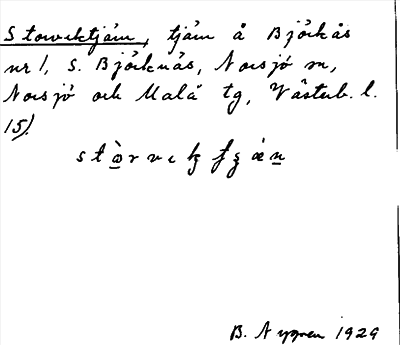 Storviktjärn, tjärn å Björkås
nr 1, s. Björknäs, Norsjö sn,
Norsjö och Malå tg, Västerb. l.
15).
B. Nygren 1929